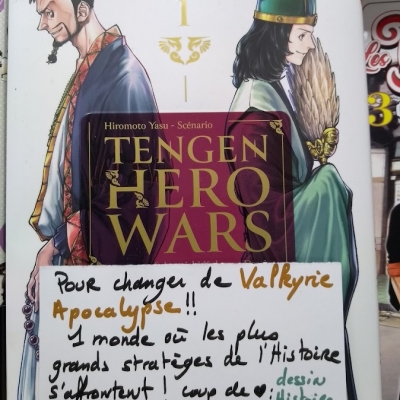 1
Hiromoto Yasu - Scénario
TENGEN
HERO
WARS
Pour changer de Valkyrie
Apocalypse!!
1 monde où les plus
grands stratèges de l'Histoire
s'affrontent! coup de ♥: dessin
Histoire
Les
3